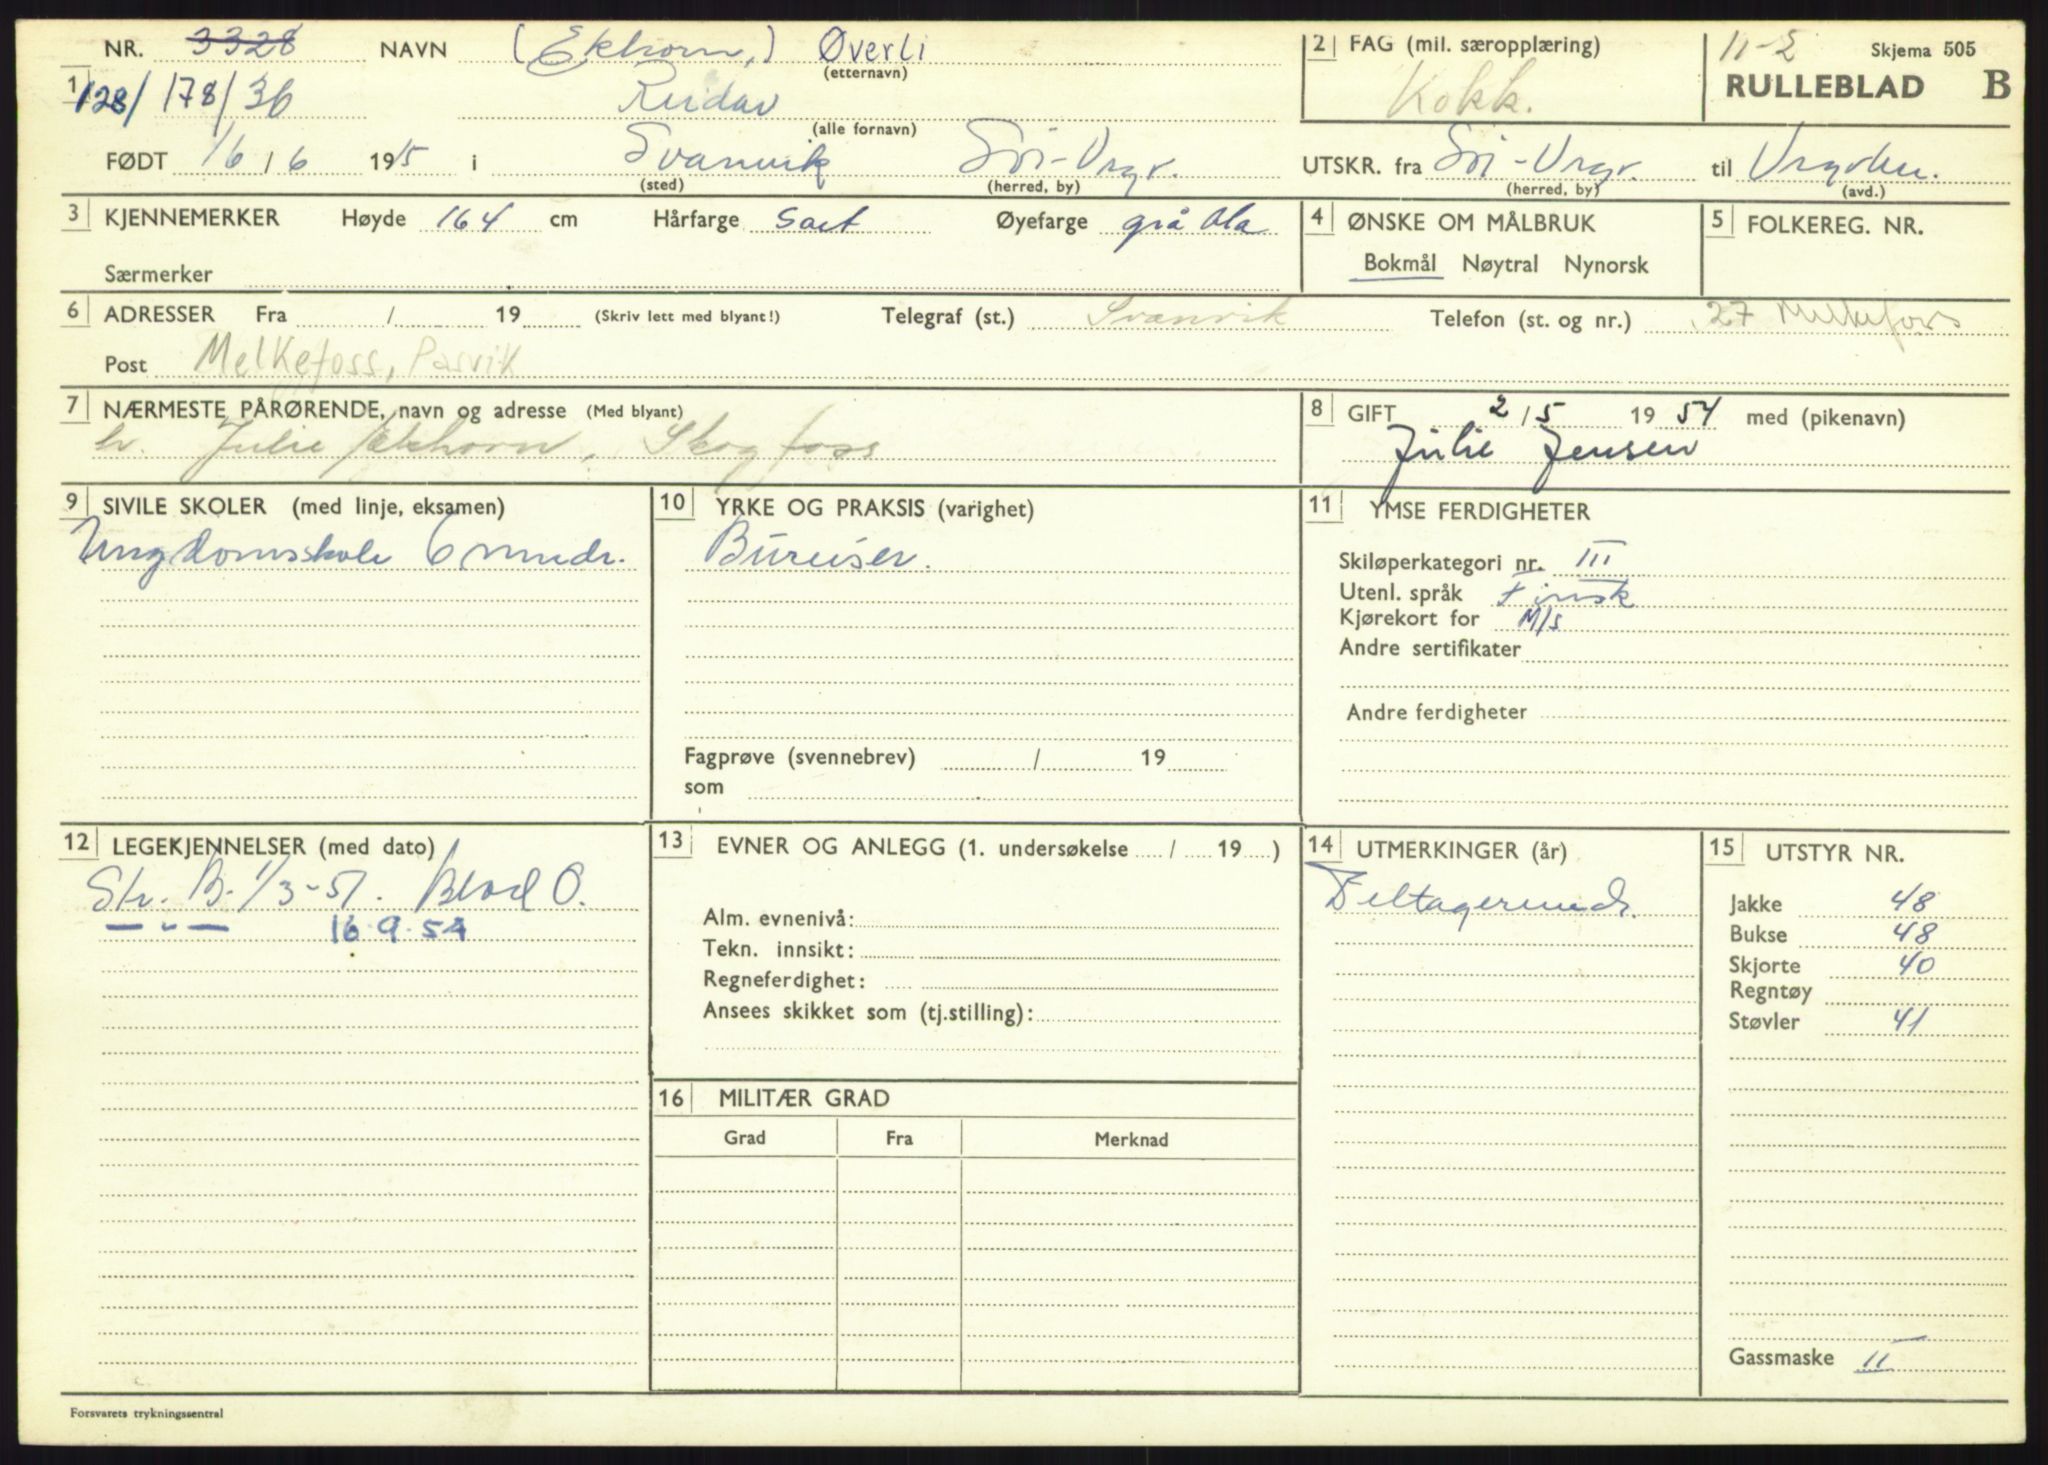 NR. 3328 NAVN (Ekhorn,) Øverli 2 FAG (mil. særopplæring) 11-2 Skjema 505
(etternavn)
1 128/178/36 Reidar Kokk. RULLEBLAD B
(alle fornavn)
FØDT 16/6 1915 i Svanvik Sör-Vrgr. UTSKR. fra Sör-Vrgr. til
(sted) (herred, by) (herred, by) (avd.)
3 KJENNEMERKER Høyde 164 cm Hårfarge sort Øyefarge grå bla 4 ØNSKE OM MÅLBRUK 5 FOLKEREG. NR.
Særmerker Bokmål Nøytral Nynorsk
6 ADRESSER Fra / 19 (Skriv lett med blyant!) Telegraf (st.) Svanvik Telefon (st. og nr.) 27 Melkefoss
Post Melkefoss, Pasvik
7 NÆRMESTE PÅRØRENDE, navn og adresse (Med blyant) 8 GIFT 2/5 1954 med (pikenavn)
h. Julie Ekhorn, Skogfoss Julie Jensen
9 SIVILE SKOLER (med linje, eksamen) 10 YRKE OG PRAKSIS (varighet) 11 YMSE FERDIGHETER
Ungdomsskole 6 mndr. Bureiser. Skiløperkategori nr. III
Utenl. språk Finsk
Kjørekort for M/s
Andre sertifikater
Andre ferdigheter
Fagprøve (svennebrev) / 19
som
12 LEGEKJENNELSER (med dato) 13 EVNER OG ANLEGG (1. undersøkelse / 19 ) 14 UTMERKINGER (år) 15 UTSTYR NR.
Str. B. 1/3-51. Blod O. Deltagermedr. Jakke 48
— " — 16.9.54 Alm. evnenivå: Bukse 48
Tekn. innsikt: Skjorte 40
Regneferdighet: Regntøy
Ansees skikket som (tj.stilling): Støvler 41
16 MILITÆR GRAD
Grad Fra Merknad
Gassmaske II
Forsvarets trykningssentral